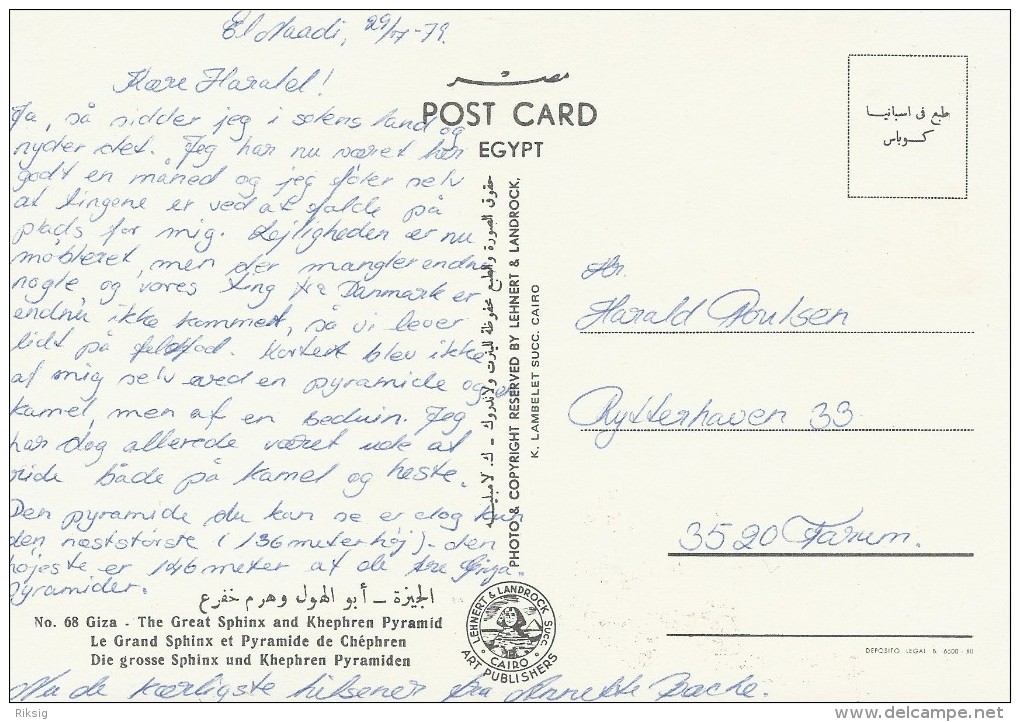 El Maadi, 29/ -79.
Kære Harald!
Ja, så sidder jeg i solens land og
nyder det. Jeg har nu været her
godt en måned og jeg føler selv
at tingene er ved at falde på
plads for mig. Lejligheden er nu
møbleret, men der mangler endnu
nogle, og vores ting fra Danmark er
endnu ikke kommet, så vi lever
lidt på feltfod. Kortet blev ikke
af mig selv ved en pyramide og en
kamel, men af en beduin. Jeg
har dog allerede været ude at
ride både på kamel og heste.
Den pyramide du kan se er dog kun
den næststörste (136 meter høj) - den
højeste er 146 meter af de tre Giza-
pyramider.
الجيزة – أبو الهول وهرم خفرع
No. 68 Giza - The Great Sphinx and Khephren Pyramid
Le Grand Sphinx et Pyramide de Chéphren
Die grosse Sphinx und Khephren Pyramiden
de kærligste hilsener fra Annette Bache.
مصر
POST CARD
EGYPT
حقوق الصورة والطبع محفوظة للينرت ولاندروك – ك. لامبليه
PHOTO & COPYRIGHT RESERVED BY LEHNERT & LANDROCK,
K. LAMBELET SUCC. CAIRO
LEHNERT & LANDROCK SUCC.
CAIRO
ART PUBLISHERS
طبع فى اسبانيا
كوباس
Hr.
Harald Poulsen
Rytterhaven 33
3520 Farum.
DEPOSITO LEGAL B. 6500 - XII
Riksig
www.delcampe.net